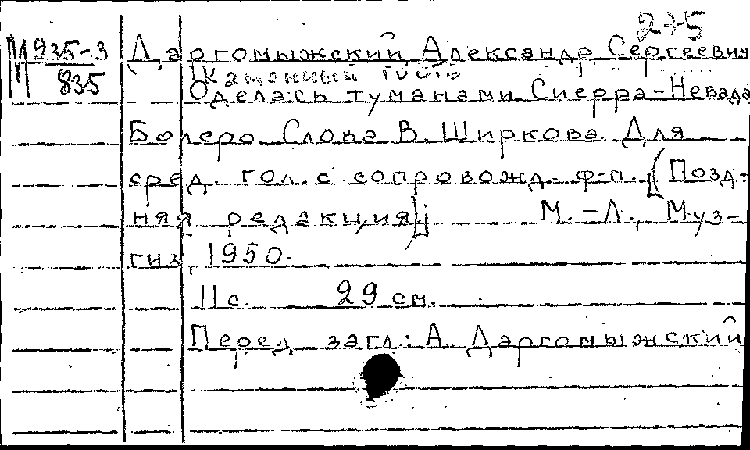 275
М 935-3 Даргомыжский Александр Сергеевич
835 [Каменный гость
Оделась туманами Сиерра-Невада
Болеро. Слова В. Ширкова. Для
сред. гол. с сопровожд. ф-п. [Позд-
няя редакция] М.-Л., Муз-
гиз, 1950.
11 с. 29 см.
Перед загл.: А. Даргомыжский